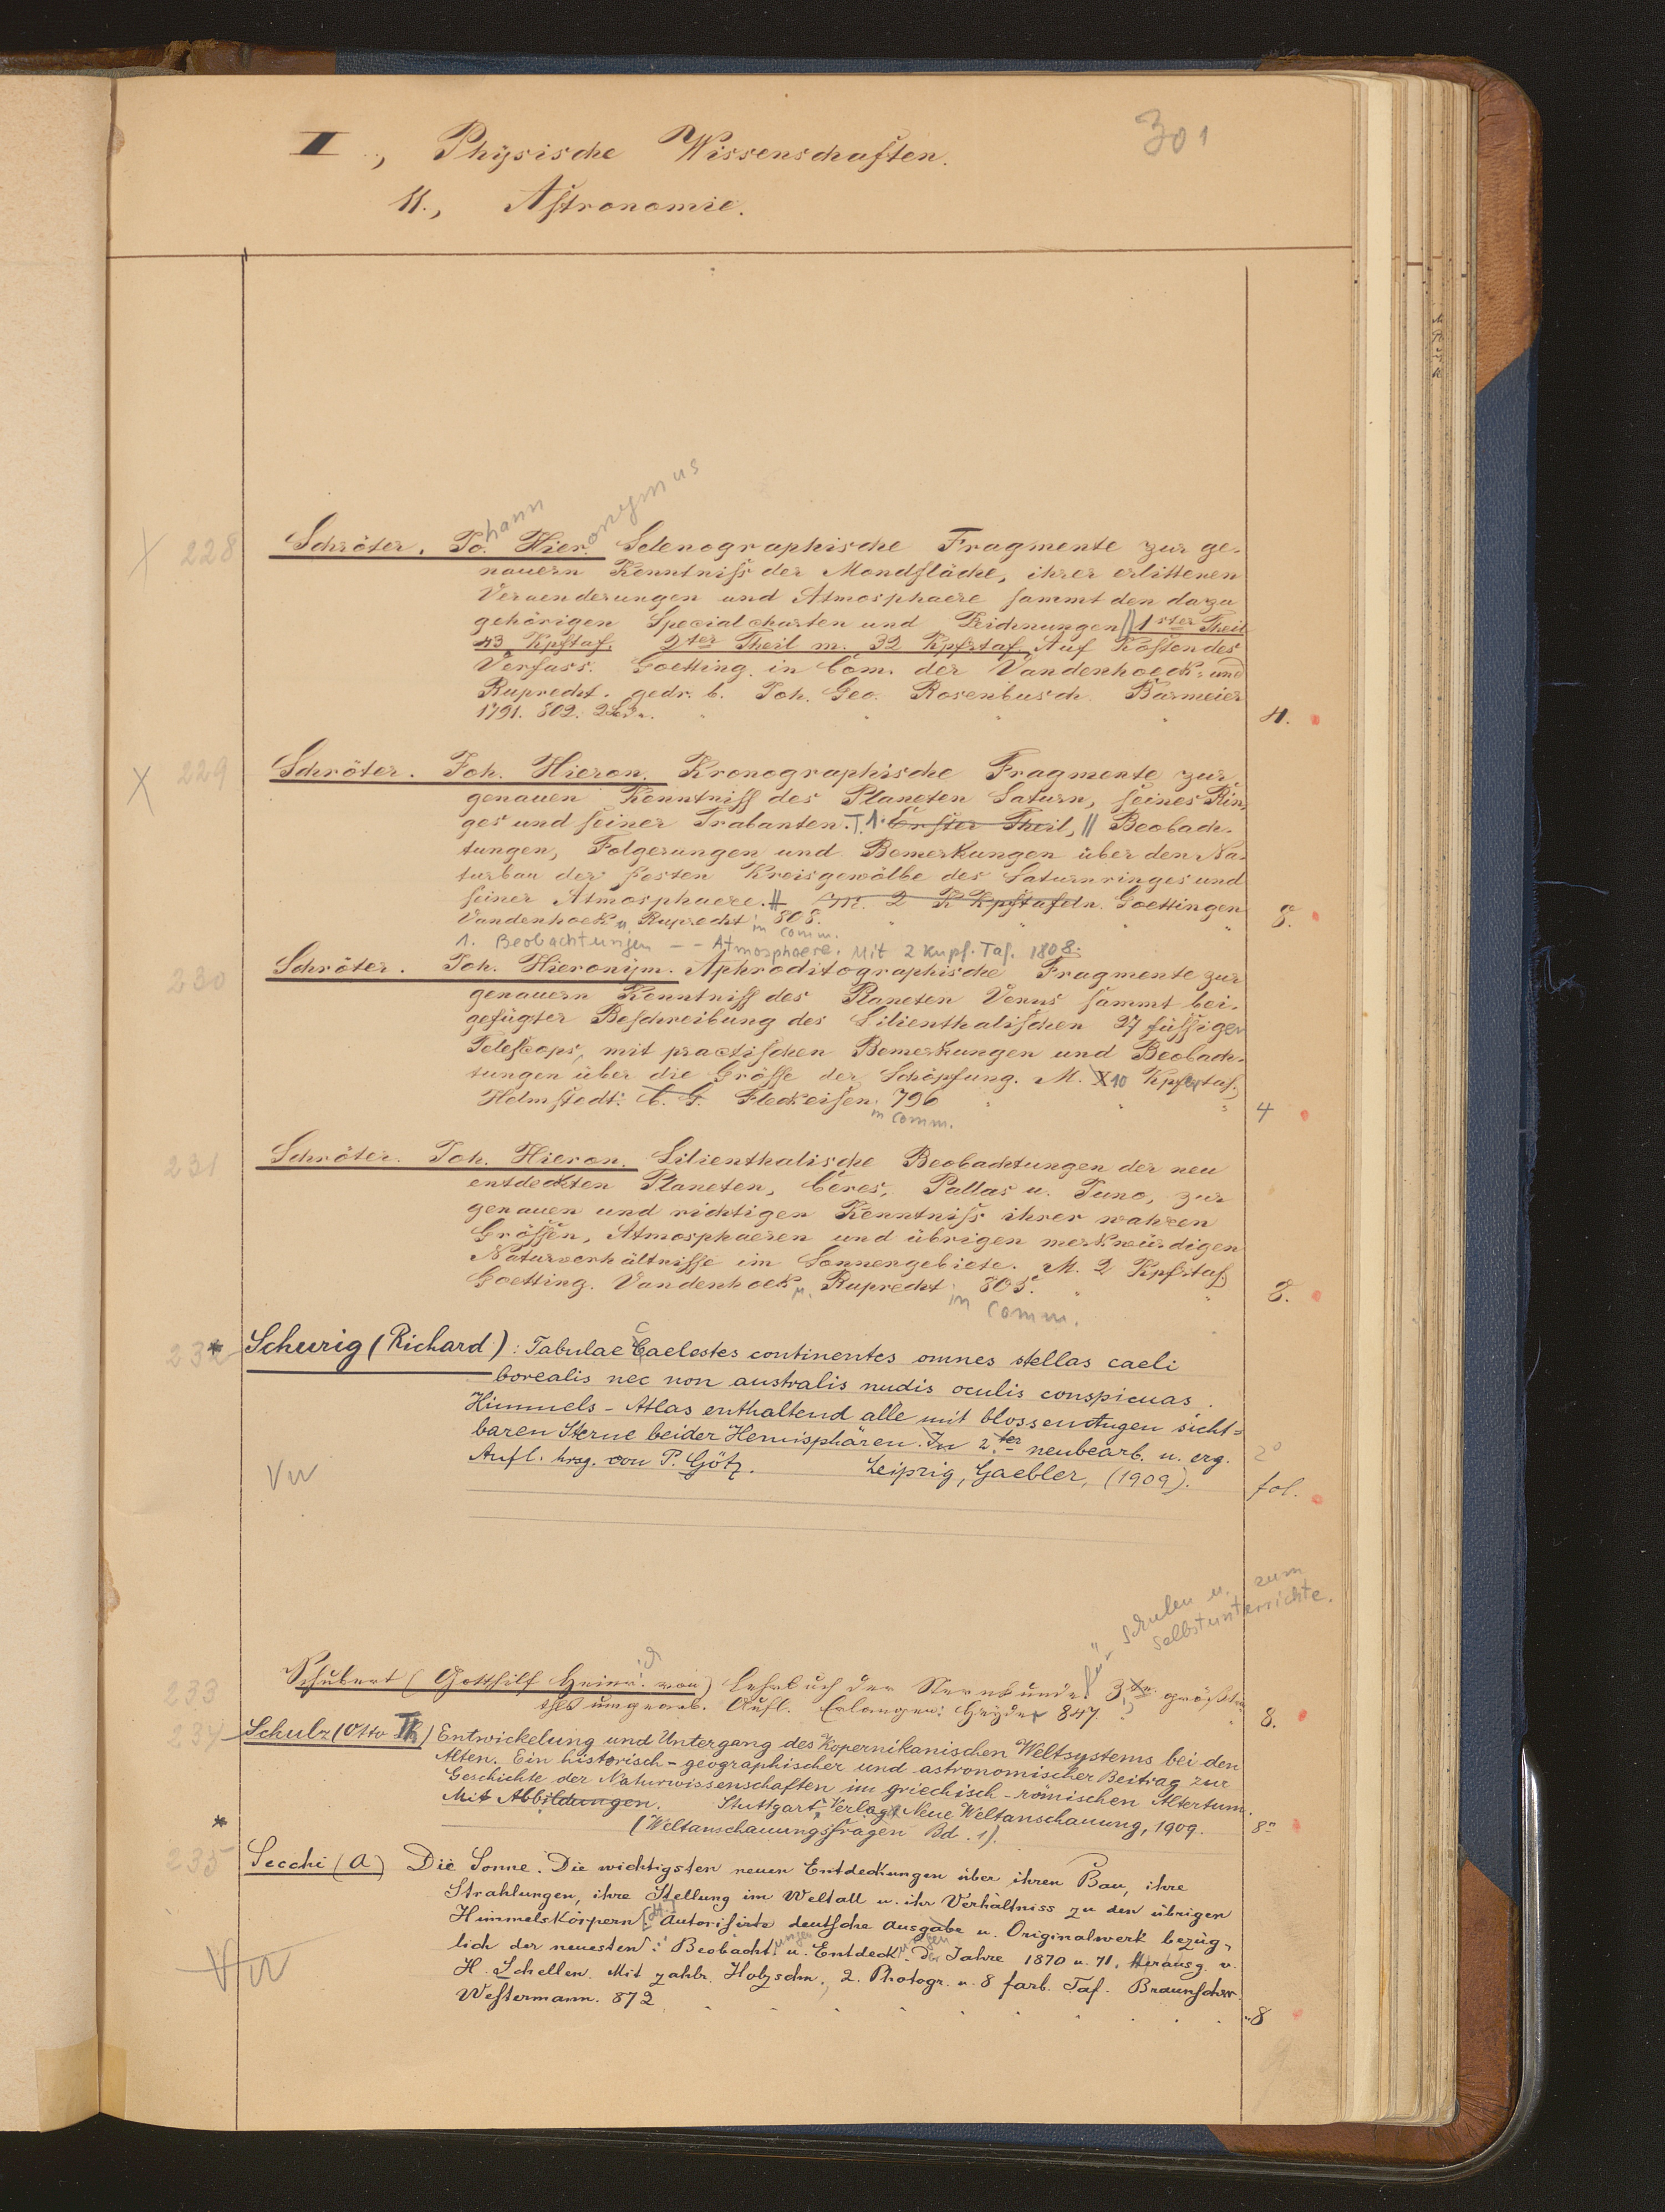 II., Physische Wissenschaften.
301
11., Astronomie.
hann
onymus
X 228 Schröter. Jo. Hier. Selenographische Fragmente zur ge-
nauern Kenntniſs der Mondfläche, ihrer erlittenen
Veraenderungen und Atmosphaere ſammt den dazu
gehörigen Specialcharten und Zeichnungen || 1ster Theil
43 Kpftaf. 2ter Theil m. 32 Kpfrtaf. Auf Koſten des
Verfass. Goetting. in Com. der Vandenhoeck- und
Ruprecht. gedr. b. Joh. Geo. Rosenbusch. Barmeier
1791. 802. 2 Bde. 4.
X 229 Schröter. Joh. Hieron. Kronographische Fragmente zur
genauen Kenntniſſ des Planeten Saturn, ſeines Rin
ges und ſeiner Trabanten. T. 1. Erſter Theil, || Beobach-
tungen, Folgerungen und Bemerkungen über den Na-
turbau der feſten Kreisgewölbe des Saturnringes und
ſeiner Atmosphaere. || M. 2 K Kpftafeln. Goettingen
Vandenhoek u. Ruprecht in comm. 808. 8.
1. Beobachtungen -- Atmosphaere. Mit 2 Kupf. Taf. 1808.
230 Schröter. Joh. Hieronym. Aphroditographische Fragmente zur
genauern Kenntniſſ des Planeten Venus ſammt bei-
gefügter Beſchreibung des Lilienthaliſchen 27 füſſigen
Teleſcops, mit practiſchen Bemerkungen und Beobach-
tungen über die Gröſſe der Schöpfung. M. X 10 Kpfrtaf.
Helmſtedt. C. G. Fleckeiſen. 796 4
in comm.
231 Schröter. Joh. Hieron. Lilienthalische Beobachtungen der neu
entdeckten Planeten, Ceres, Pallas u. Juno, zur
genauen und richtigen Kenntniſs ihrer wahren
Gröſſen, Atmosphaeren und übrigen merkwürdigen
Naturverhältniſſe im Sonnengebiete. M. 2 Kpfrtaf.
Goetting. Vandenhoek u. Ruprecht 805. 8.
in comm.
232 * Schurig (Richard): Tabulae Caelestes continentes omnes stellas caeli
borealis nec non australis nudis oculis conspicuas.
Himmels-Atlas enthaltend alle mit blossen Augen sicht=
baren Sterne beider Hemisphären. In 2.ter neubearb. u. erg. 2°
Aufl. hrsg. von P. Götz. Leipzig, Gaebler, (1909). fol.
für Schulen u. zum
Selbstunterrichte.
233 Schubert (Gotthilf Heinr. von) Lehrbuch der Sternkunde. 3te größten
thls umgearb. Aufl. Erlangen: Heyder 847. 8.
234 Schulz (Otto Th) Entwickelung und Untergang des Kopernikanischen Weltsystems bei den
Alten. Ein historisch-geographischer und astronomischer Beitrag zur
Geschichte der Naturwissenschaften im griechisch-römischen Altertum.
Mit Abbildungen. Stuttgart, Verlag Neue Weltanschauung, 1909. 8°
(Weltanschauungsfragen Bd. 1).
*
235 Secchi (A) Die Sonne. Die wichtigsten neuen Entdeckungen über ihren Bau, ihre
Strahlungen, ihre Stellung im Weltall u. ihr Verhältniss zu den übrigen
Himmelskörpern. Autoriſirte deutſche Ausgabe u. Originalwerk bezüg-
lich der neuesten Beobachtungen u. Entdeckungen d. Jahre 1870 u. 71. Herausg. v.
H. Schellen. Mit zahlr. Holzschn., 2. Photogr. u. 8 farb. Taf. Braunſchw.
Weſtermann. 872 8